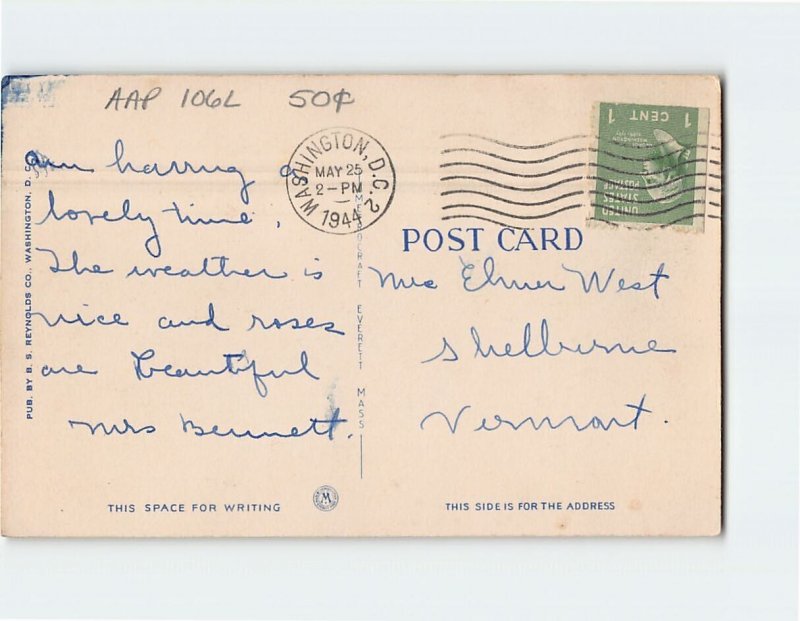 AAP 106L 50¢
am having a
lovely time.
The weather is
nice and roses
are beautiful
Mrs Bennett.
WASHINGTON, D.C. 2
MAY 25
2-PM
1944
UNITED
STATES
POSTAGE
1 CENT 1
POST CARD
Mrs Elmer West
Shelburne
Vermont.
PUB. BY B. S. REYNOLDS CO., WASHINGTON, D. C.
EVERETT MASS
THIS SPACE FOR WRITING
THIS SIDE IS FOR THE ADDRESS